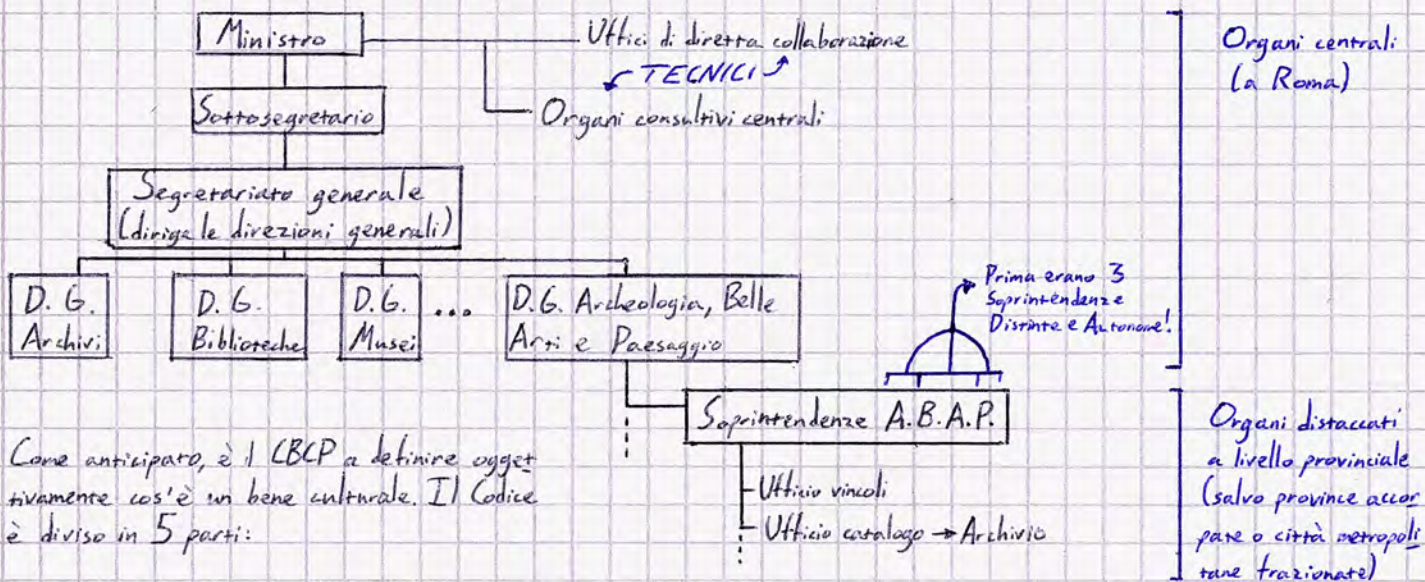 Ministro
Uffici di diretta collaborazione
TECNICI
Organi consultivi centrali
Sottosegretario
Segretariato generale
(dirige le direzioni generali)
D. G.
Archivi
D. G.
Biblioteche
D. G.
Musei
...
D.G. Archeologia, Belle
Arti e Paesaggio
Prima erano 3
Soprintendenze
Distinte e Autonome!
Soprintendenze A.B.A.P.
Ufficio vincoli
Ufficio catalogo → Archivio
Organi centrali
(a Roma)
Organi distaccati
a livello provinciale
(salvo province accor
pate o città metropoli
tane frazionate)
Come anticipato, è il CBCP a definire ogget
tivamente cos'è un bene culturale. Il Codice
è diviso in 5 parti: